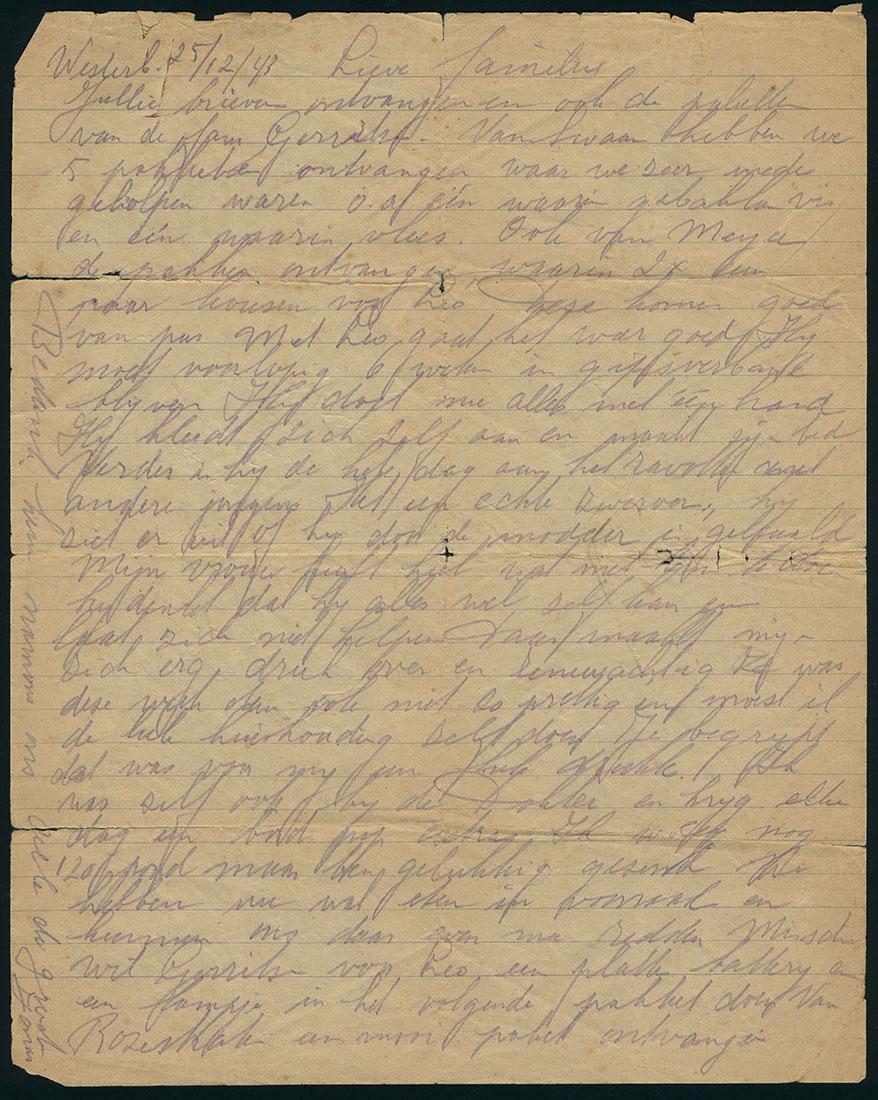 Westerb. 25/12/43 Lieve familie
Jullie brieven ontvangen en ook de paketten
van de fam Gerritse. Van Swaan hebben we
5 paketten ontvangen waar we zeer mede
geholpen waren o.a. één waarin gebakken vis
en één waarin vlees. Ook van Meyer
de pakken ontvangen, waarin 2x een
paar kousen voor Leo Deze komen goed
van pas Met Leo gaat het war goed Hy
moet voorlopig 6 weken in gipsverband
blyven Hy doet nu alles met één hand
Hy kleedt zich zelf aan en maakt zyn bed
Verder is hy de hele dag aan het ravotten met
andere jongens Net een echte zwerver, hy
ziet er uit of hy door de modder is gehaald
Mijn vrouw heeft heel wat met hem te doen
hy denkt dat hy alles wel zelf kan en
laat zich niet helpen Daar maakt myn
zich erg druk over en zenuwachtig Ze was
deze week dan ook niet zo prettig en moest ik
de hele huishouding zelf doen Je begrypt
dat was voor my een hele drukte. Ik
was zelf ook by de Dokter en kryg elke
dag een bord pap extra Ik weeg nog
120 pond maar ben gelukkig gezond We
hebben nu wat eten in voorraad en
kunnen ons daar goed mee redden Misschien
wil Gerritse voor Leo een platte battery en
een lampje in het volgende pakket doen Van
een mooi paket ontvangen
Bedank hem namens ons